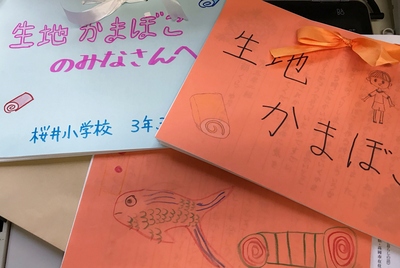 生地かまぼこ
のみなさんへ
桜井小学校 3年
生地
かまぼこ